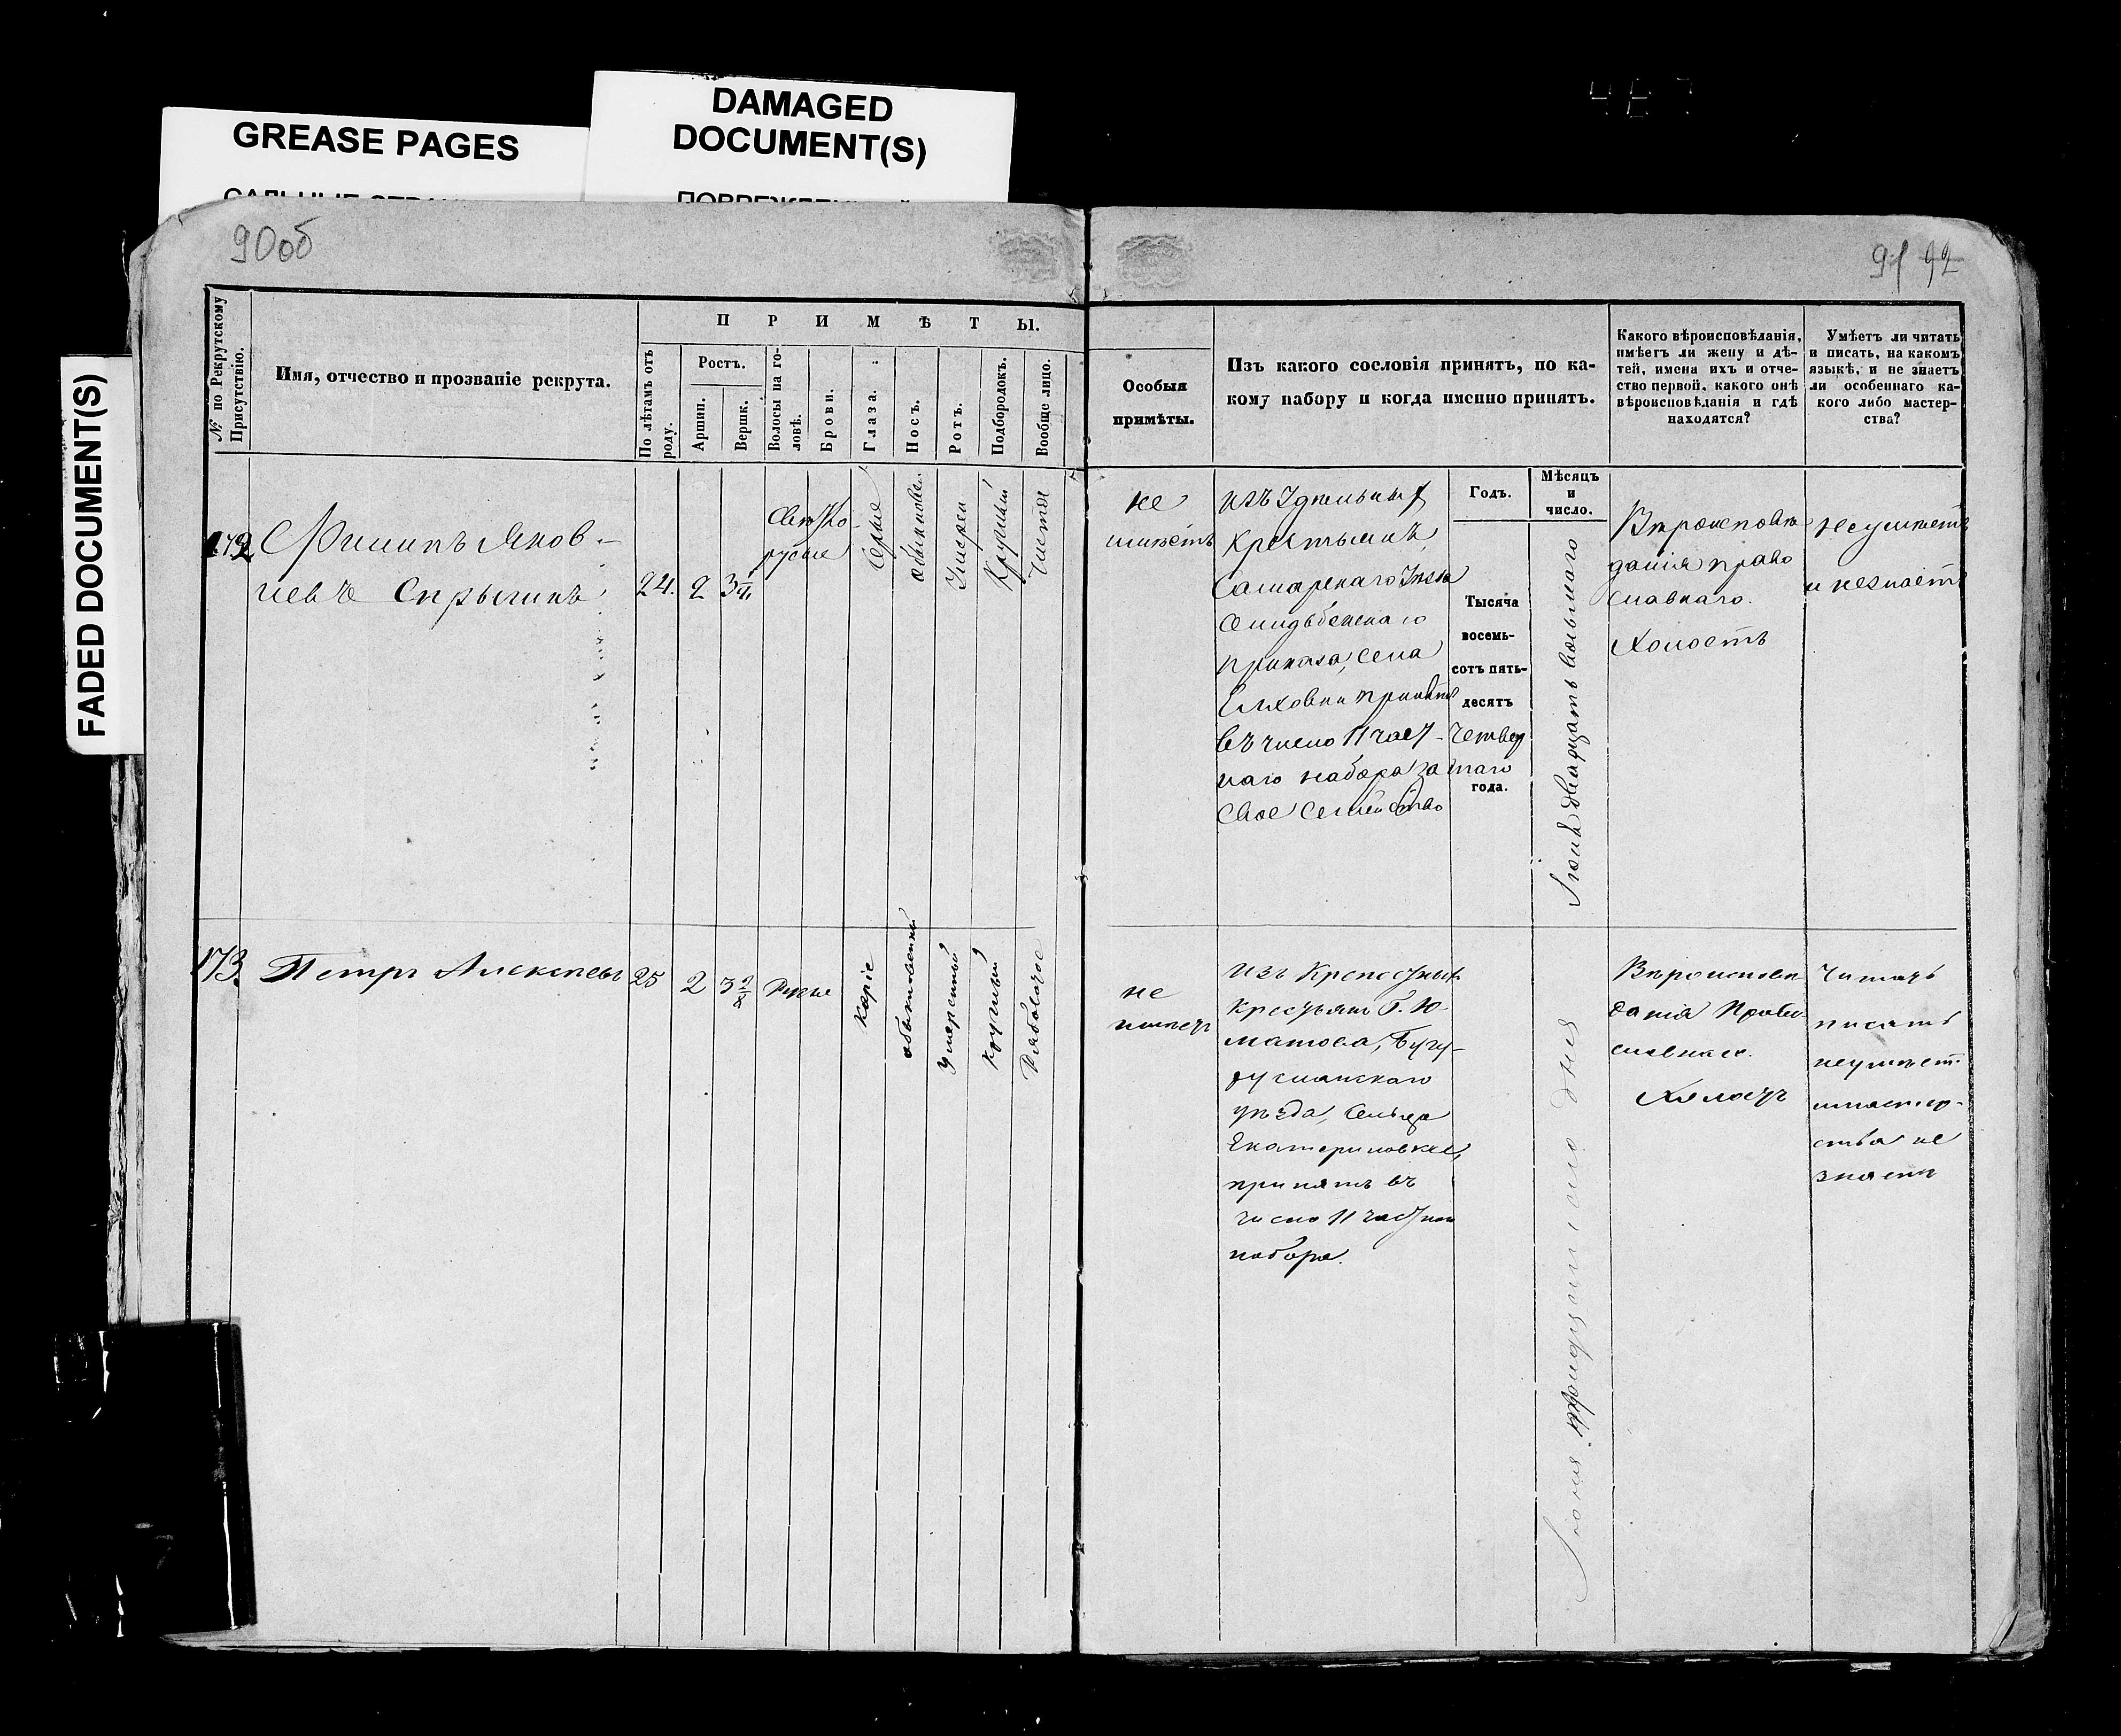 GREASE PAGES
DAMAGED
DOCUMENT(S)
FADED DOCUMENT(S)
90об
91 92
№ по Рекрутскому
Присутствію.
Имя, отчество и прозваніе рекрута.
ПРИМѢТЫ.
По лѣтамъ отъ
роду.
Ростъ.
Аршин.
Вершк.
Волосы на го-
ловѣ.
Брови.
Глаза.
Носъ.
Ротъ.
Подбородокъ.
Вообще лицо.
Особыя
примѣты.
Изъ какого сословія принятъ, по ка-
кому набору и когда именно принятъ.
Какого вѣроисповѣданія,
имѣетъ ли жену и дѣ-
тей, имена ихъ и отче-
ство первой, какого онѣ
вѣроисповѣданія и гдѣ
находятся?
Умѣетъ ли читать
и писать, на какомъ
языкѣ, и не знаетъ
ли особеннаго ка-
кого либо мастер-
ства?
Годъ.
Мѣсяцъ
и
число.
172
Филипъ Яков-
левъ Спрыгинъ
24.
2
3
Светло-
русые
Серые
обыкновен.
Умерен
Круглый
Чистое
не
имѣетъ
изъ Удѣльныхъ
Крестьянъ,
Самарскаго
приказа, села
Елховки принятъ
въ число 11 част-
наго набора за
свое Семейство
Тысяча
восемь-
сотъ пять-
десятъ
четвер
таго
года.
Июня двадцать восьмаго
Вѣроисповѣ
данія право
славнаго.
Холостъ
неумѣетъ
и незнаетъ
173.
Петръ Алексѣевъ
25
2
3 2/8
Русые
Каріе
обыкновенный
умѣренный
круглый
Рябоватое
не
имѣетъ
Изъ Крепостныхъ
Крестьянъ Г. Ю-
матова, Бугу-
русланскаго
уѣзда, Сельца
Екатериновки,
принятъ въ
число 11 частнаго
набора.
Июня тридцатого дня
Вѣроисповѣ
данія Право
славнаго.
Холостъ
Читать
писать
неумѣетъ
мастер-
ства не
знаетъ